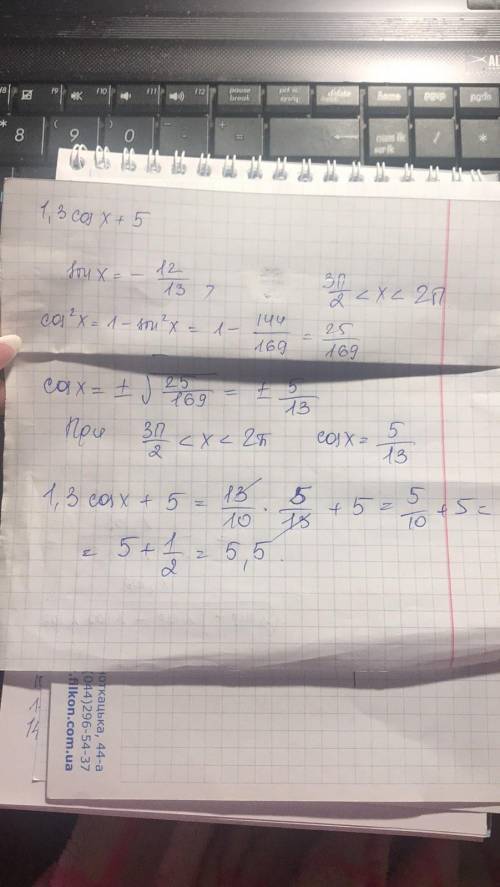 F8 F9 F10 F11 F12 pause break prt sc sysrq delete home pgup pgdn
* 8 ( 9 ) 0 - + = ← num lk scr lk / *
1,3 cos x + 5
sin x = - 12/13, 3π/2 < x < 2π
cos²x = 1 - sin²x = 1 - 144/169 = 25/169
cos x = ± √25/169 = ± 5/13
При 3π/2 < x < 2π cos x = 5/13
1,3 cos x + 5 = 13/10 · 5/13 + 5 = 5/10 + 5 =
= 5 + 1/2 = 5,5.
14
лоткацька, 44-а
(044)296-54-37
.filkon.com.ua